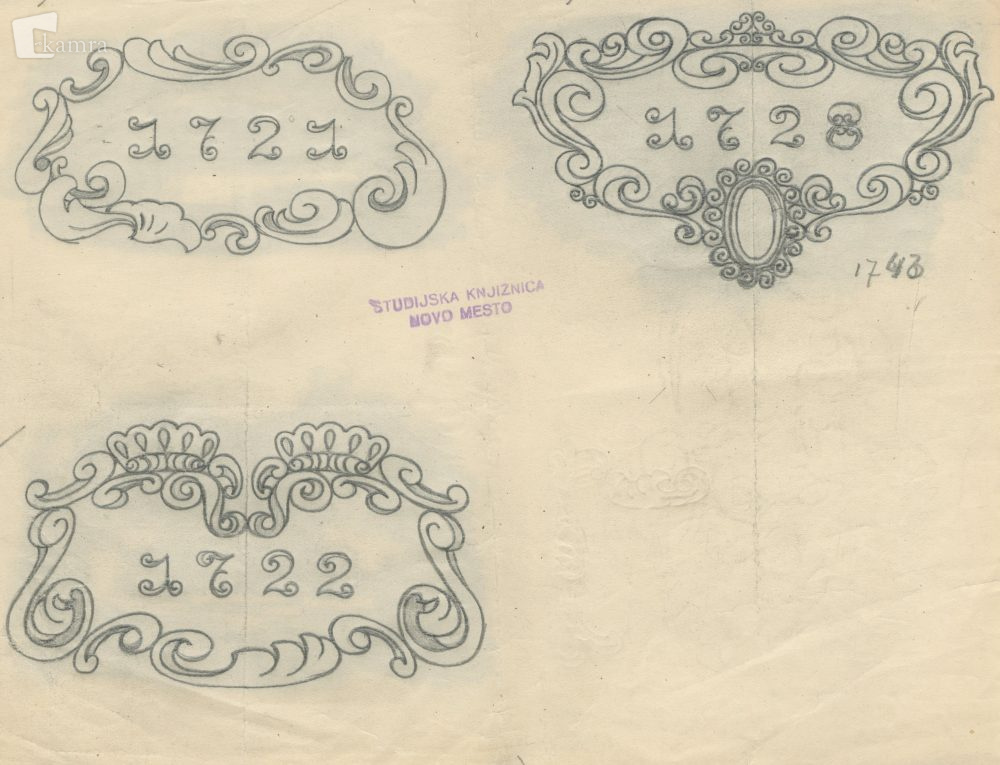 kamra
1721
1728
1743
STUDIJSKA KNJIŽNICA
NOVO MESTO
1722